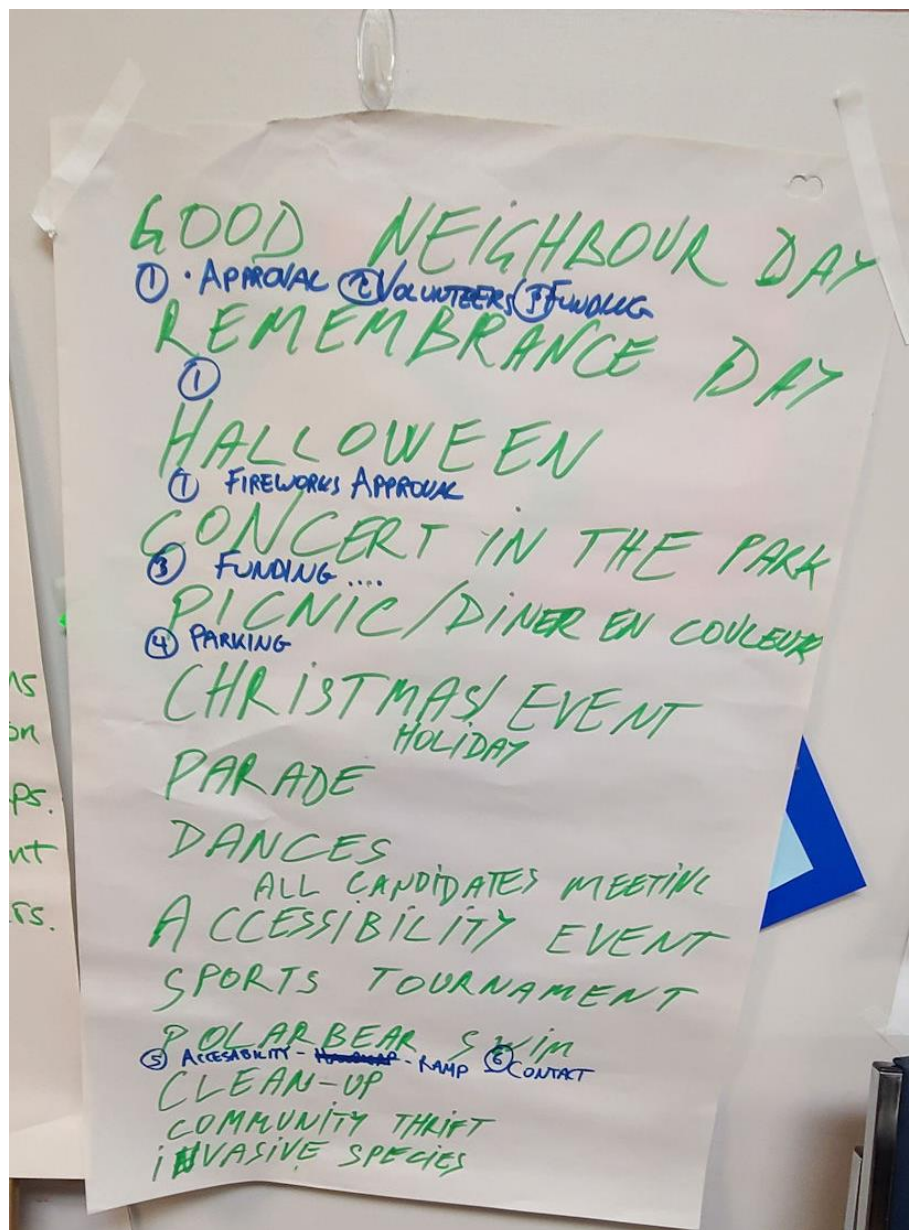 GOOD NEIGHBOUR DAY
① · APPROVAL ② VOLUNTEERS ③ FUNDING
REMEMBRANCE DAY
①
HALLOWEEN
① FIREWORKS APPROVAL
CONCERT IN THE PARK
③ FUNDING ....
PICNIC/DINER EN COULEUR
④ PARKING
CHRISTMAS/ EVENT
HOLIDAY
PARADE
DANCES
ALL CANDIDATES MEETING
ACCESSIBILITY EVENT
SPORTS TOURNAMENT
POLAR BEAR SWIM
⑤ ACCESABILITY - - RAMP ⑥ CONTACT
CLEAN-UP
COMMUNITY THRIFT
INVASIVE SPECIES